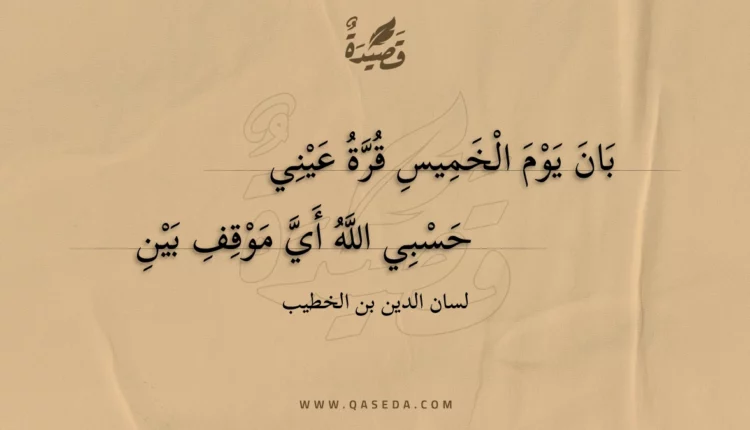 قَصِيْدَةٌ
بَانَ يَوْمَ الْخَمِيسِ قُرَّةُ عَيْنِي
حَسْبِي اللَّهُ أَيَّ مَوْقِفِ بَيْنِ
لسان الدين بن الخطيب
WWW.QASEDA.COM